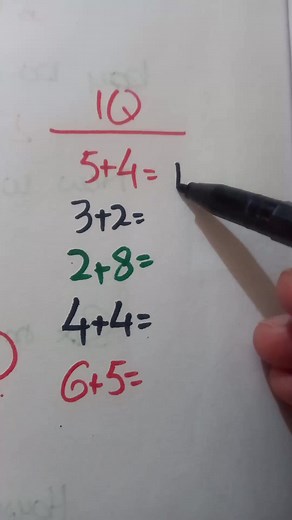 IQ
5+4=
3+2=
2+8=
4+4=
6+5=